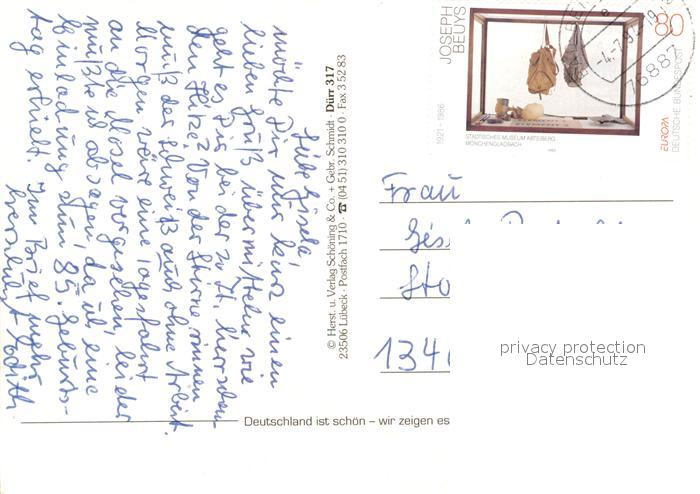 Liebe Gisela,
möchte Dir nur kurz einen
lieben Gruß übermitteln wie
geht es Dir bei der z. Zt. herrschen-
den Hitze? Von der Stirne rinnen
muß der Schweiß auch ohne Arbeit.
Morgen wäre eine Tagesfahrt
an die Mosel vorgesehen leider
mußte ich absagen, da ich eine
Einladung zum 85. Geburts-
tag erhielt. Im Brief mehr
herzlichst
© Herst. u. Verlag Schöning & Co. + Gebr. Schmidt · Dürr 317
23506 Lübeck · Postfach 1710 · ☎ (04 51) 310 310 0 · Fax 3 52 83
JOSEPH
BEUYS
1921 - 1986
STÄDTISCHES MUSEUM ABTEIBERG
MÖNCHENGLADBACH
80
EUROPA
DEUTSCHE BUNDESPOST
76887
Frau
Gis
Sto
134
privacy protection
Datenschutz
Deutschland ist schön – wir zeigen es